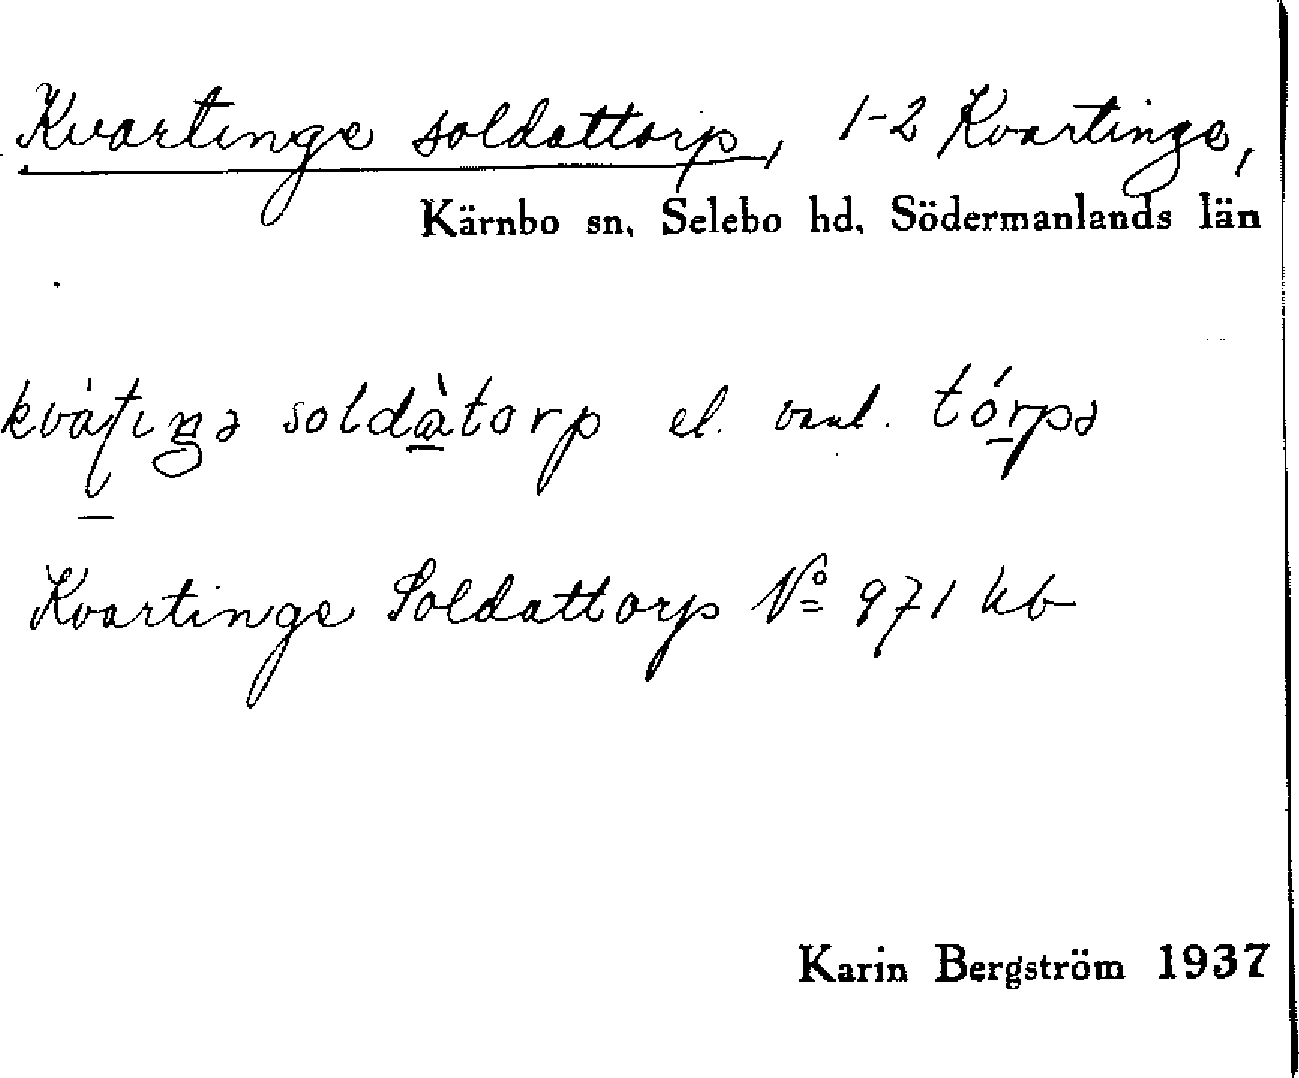 Kvartinge soldattorp, 1-2 Kvartinge,
Kärnbo sn, Selebo hd, Södermanlands län
soldàtorp el. vanl. tórpə
Kvartinge Soldattorp № 971 kb
Karin Bergström 1937